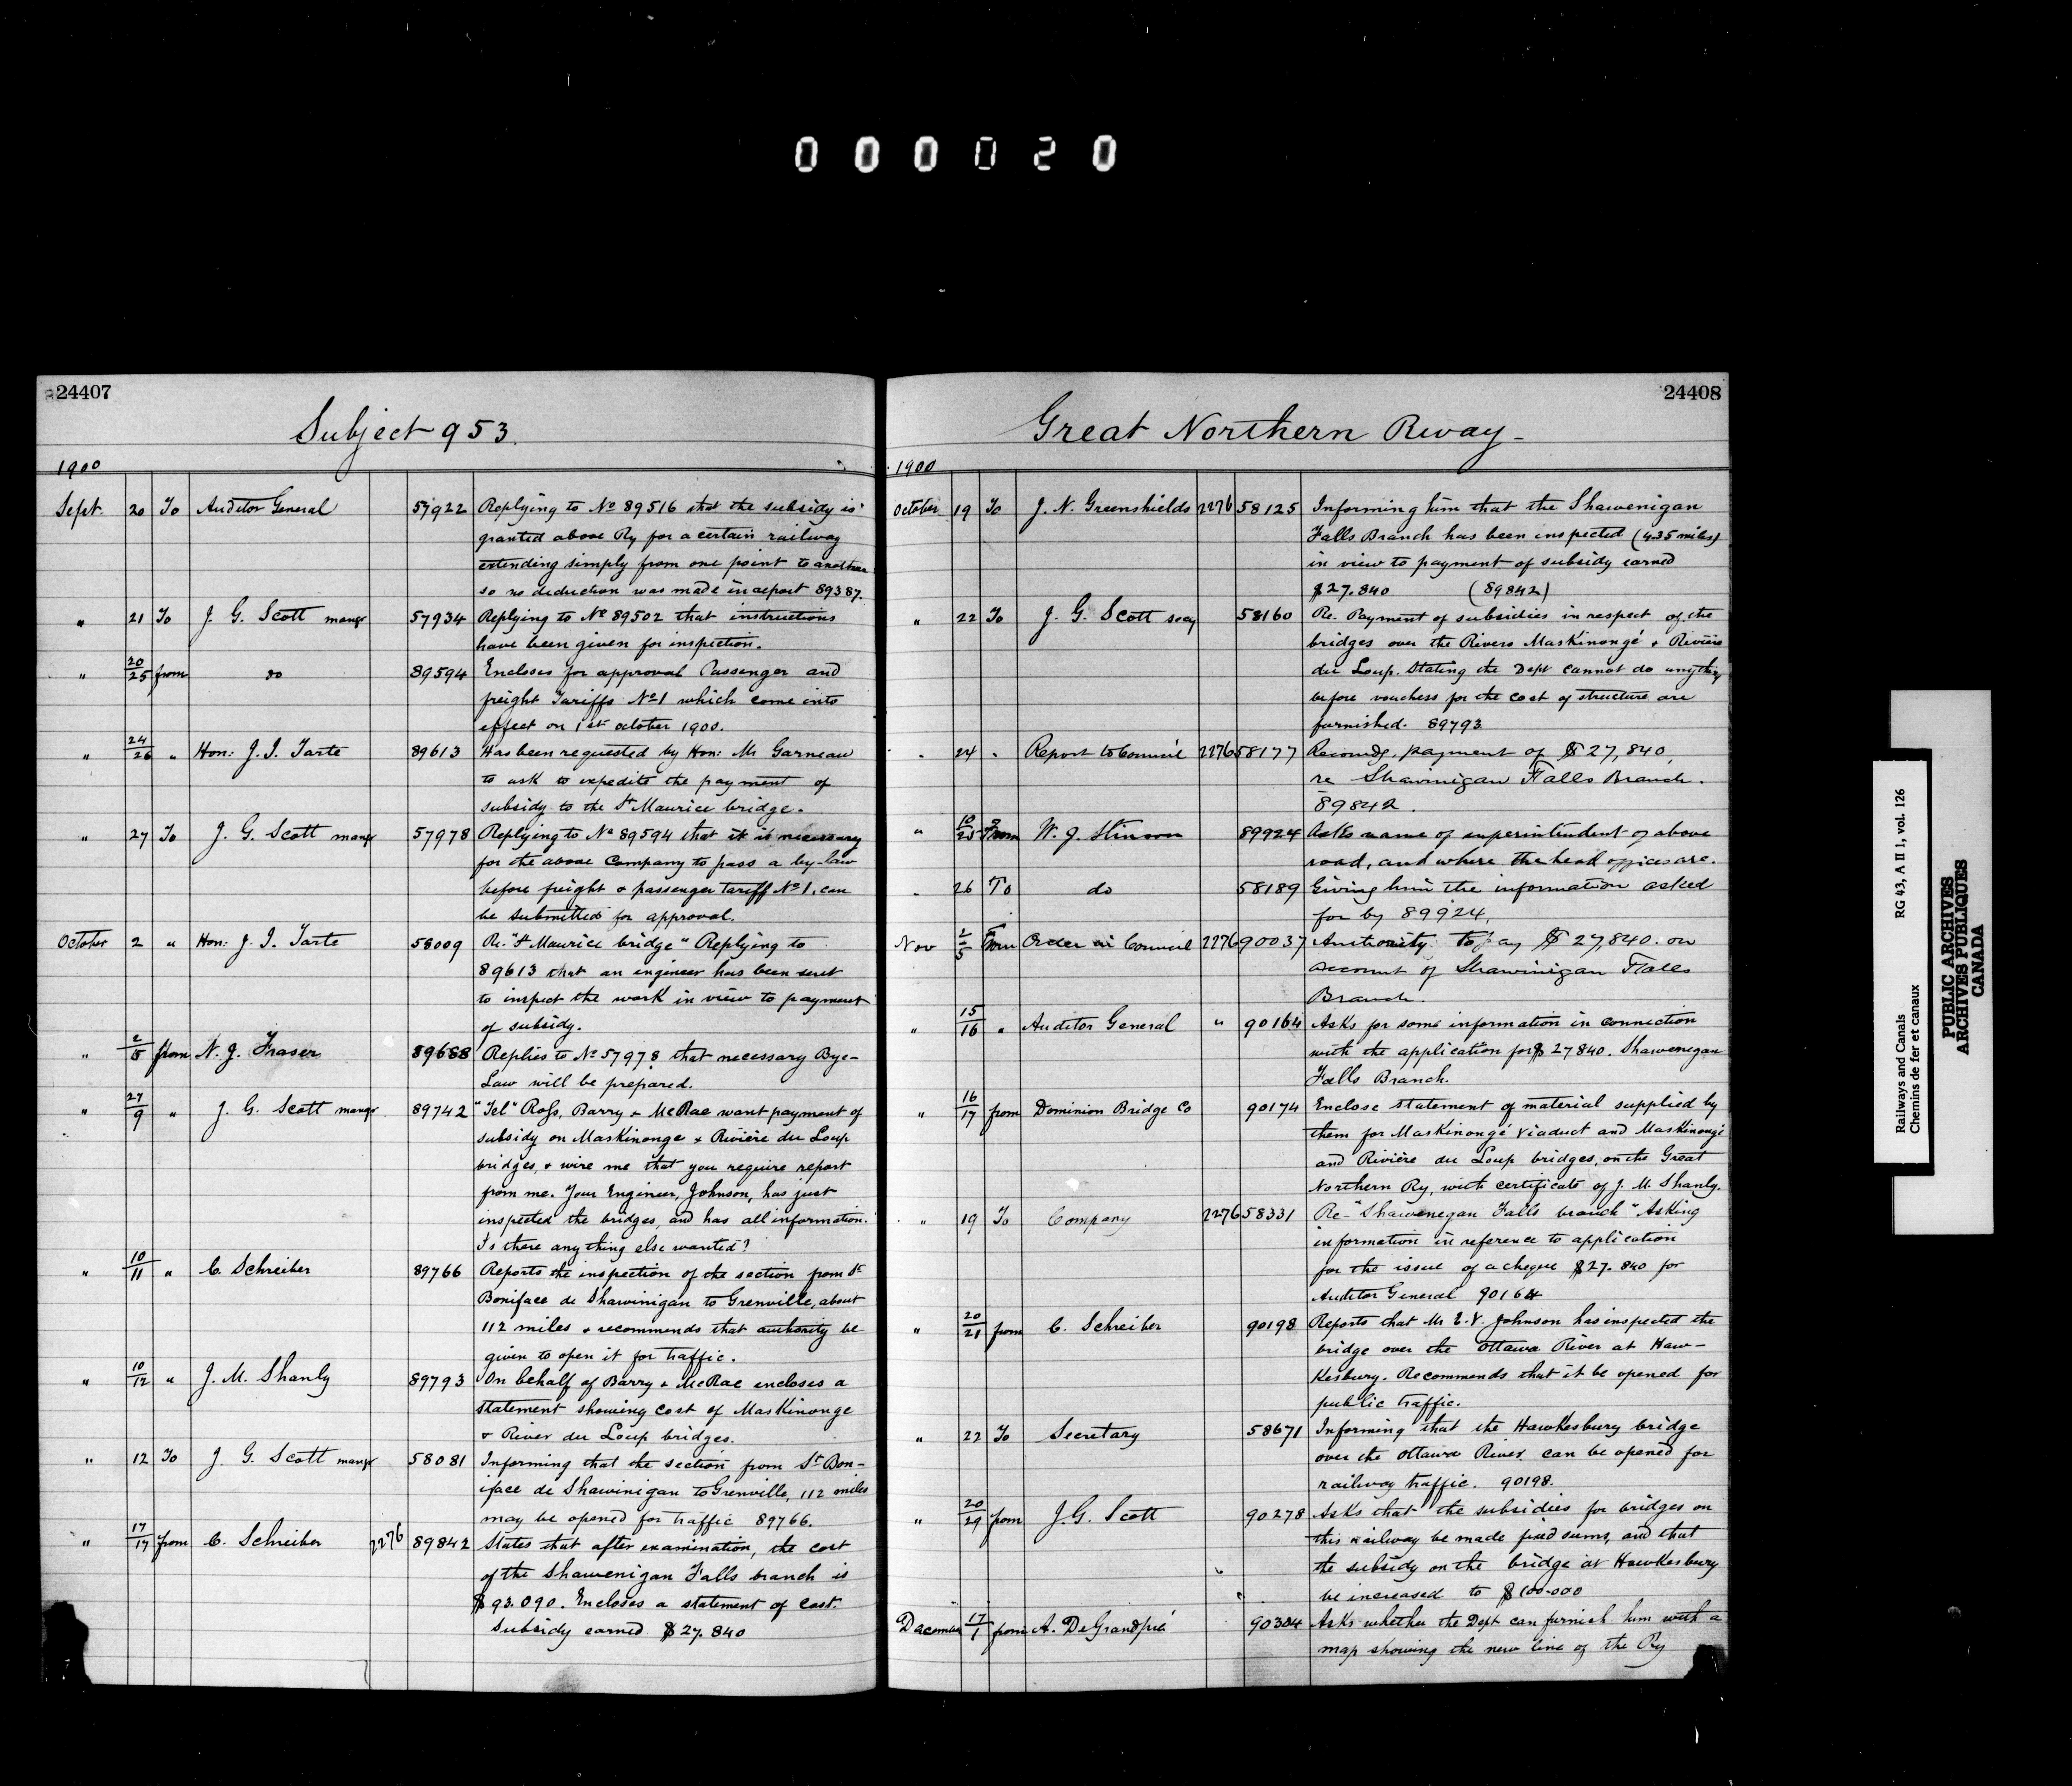 000020
24407
Subject 953.
1900
Sept. 20 To Auditor General 57922 Replying to No 89516 that the subsidy is
granted above Ry for a certain railway
extending simply from one point to another
so no deduction was made in report 89387.
" 21 To J. G. Scott mangr 57934 Replying to No 89502 that instructions
have been given for inspection.
" 20/25 from do 89594 Encloses for approval Passenger and
freight Tariffs No 1 which come into
effect on 1st october 1900.
" 24/26 " Hon: J. I. Tarte 89613 Has been requested by Hon: Mr Garneau
to ask to expedite the payment of
subsidy to the St Maurice bridge.
" 27 To J. G. Scott mangr 57978 Replying to No 89594 that it is necessary
for the above Company to pass a by-law
before freight & passenger Tariff No 1, can
be submitted for approval.
October 2 " Hon: J. I. Tarte 58009 Re. "St Maurice bridge" Replying to
89613 that an engineer has been sent
to inspect the work in view to payment
of subsidy.
" 2/5 from N. J. Fraser 89688 Replies to No 57978 that necessary Bye-
Law will be prepared.
" 27/9 " J. G. Scott mangr 89742 "Tel" Ross, Barry & McRae want payment of
subsidy on Maskinonge & Rivière du Loup
bridges, & wire me that you require report
from me. Your Engineer, Johnson, has just
inspected the bridges, and has all information.
Is there any thing else wanted?
" 10/11 " C. Schreiber 89766 Reports the inspection of the section from St
Boniface de Shawinigan to Grenville, about
112 miles & recommends that authority be
given to open it for traffic.
" 10/12 " J. M. Shanly 89793 On behalf of Barry & McRae encloses a
statement showing cost of Maskinonge
& River du Loup bridges.
" 12 To J. G. Scott mangr 58081 Informing that the section from St Bon-
iface de Shawinigan to Grenville, 112 miles
may be opened for traffic 89766.
" 17/17 from C. Schreiber 2276 89842 States that after examination, the cost
of the Shawenigan Falls branch is
$93.090. Encloses a statement of cost.
Subsidy earned $27.840
24408
Great Northern Rway-
1900
October 19 To J. N. Greenshields 2276 58125 Informing him that the Shawenigan
Falls Branch has been inspected (4.35 miles)
in view to payment of subsidy earned
$27.840 (89842)
" 22 To J. G. Scott secy 58160 Re. Payment of subsidies in respect of the
bridges over the Rivers Maskinongé & Rivière
du Loup. Stating the Dept cannot do anything
before vouchers for the cost of structure are
furnished. 89793
" 24 " Report to Council 2276 58177 Recomdg. payment of $27,840,
re Shawinigan Falls Branch.
89842.
" 10/25 From W. J. Stinson 89924 Asks name of superintendent of above
road, and where the head offices are.
" 26 To do 58189 Giving him the information asked
for by 89924.
Nov 2/5 From Order in Council 2276 90037 Authority to pay $27,840. on
account of Shawinigan Falls
Branch.
" 15/16 " Auditor General " 90164 Asks for some information in connection
with the application for $27840. Shawenegan
Falls Branch.
" 16/17 from Dominion Bridge Co 90174 Enclose statement of material supplied by
them for Maskinongé viaduct and Maskinongé
and Rivière du Loup bridges, on the Great
Northern Ry, with certificate of J. M. Shanly.
" 19 To Company 2276 58331 Re-"Shawenegan Falls branch" Asking
information in reference to application
for the issue of a cheque $27.840 for
Auditor General 90164
" 20/21 from C. Schreiber 90198 Reports that Mr E.V. Johnson has inspected the
bridge over the Ottawa River at Haw-
kesbury. Recommends that it be opened for
public traffic.
" 22 To Secretary 58671 Informing that the Hawkesbury bridge
over the Ottawa River can be opened for
railway traffic. 90198.
" 20/29 from J.G. Scott 90278 Asks that the subsidies for bridges on
this railway be made fixed sums, and that
the subsidy on the bridge at Hawkesbury
be increased to $100.000
17/1 from A. DeGrandpré 90304 Asks whether the Dept can furnish him with a
map showing the new line of the Ry
Railways and Canals RG 43, A II 1, vol. 126
Chemins de fer et canaux
PUBLIC ARCHIVES
ARCHIVES PUBLIQUES
CANADA